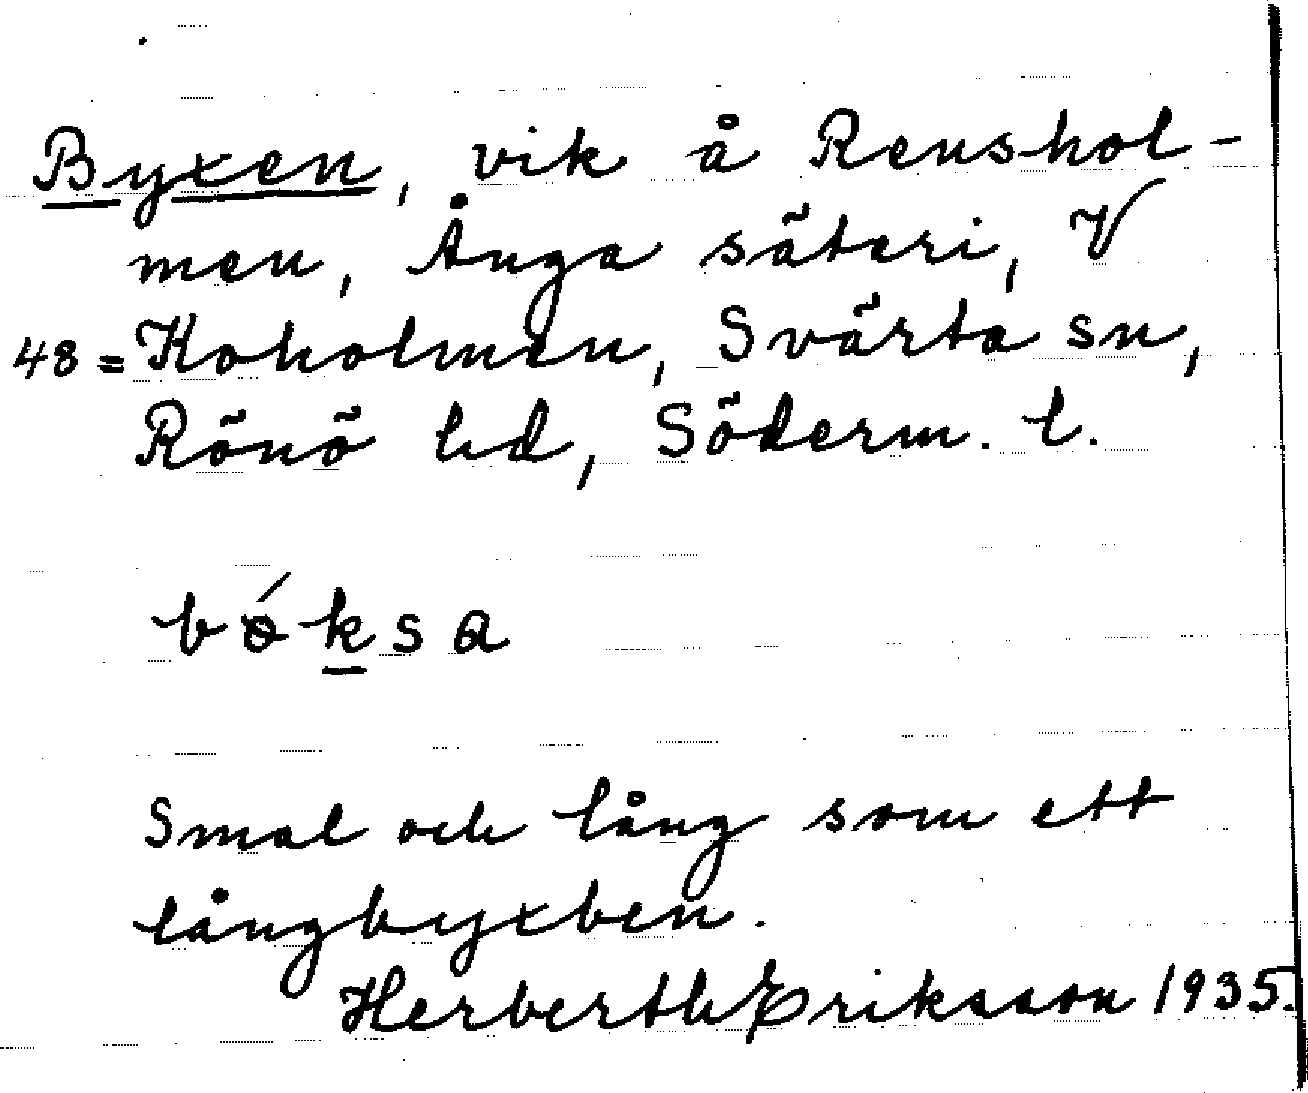 Byxen, vik å Renshol-
men, Ånga säteri, V
48 = Koholmen, Svärta sn,
Rönö hd, Söderm. l.
bǿksa
Smal och lång som ett
långbyxben.
Herberth Eriksson 1935.